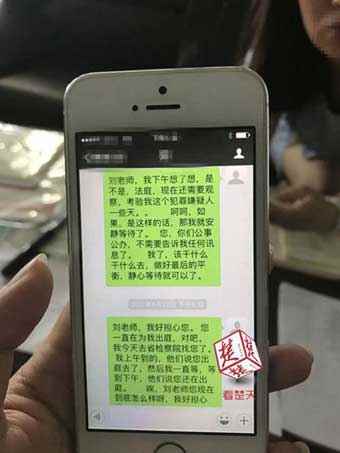 刘老师，我下午想了想，是
不是，法庭，现在还需要观
察，考验我这个犯罪嫌疑人
一些天。。 呵呵，如
果，是这样的话，那我就安
静等待了。 您，你们公事
公办，不需要告诉我任何讯
息了。 我了，该干什么
干什么去，做好最后的平
衡，静心等待就可以了。
刘老师，我好担心您。您
一直在为我出庭，对吧。
我今天去省检察院找您了。
我上午到的，他们说您出
庭去了，然后我一直等，等
到下午，他们说您还在出
庭。 唉，刘老师您现在
到底怎么样呀，我好担心
看楚天